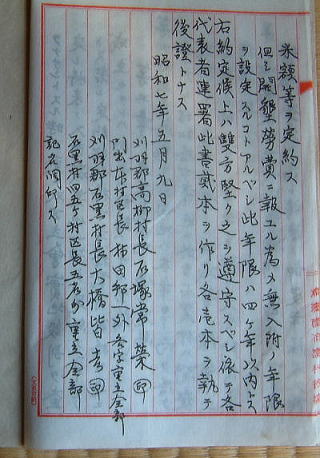 米額等ヲ定約ス
但シ開墾労費ニ報エル為メ無入附ノ年限
ヲ設定スルコトアルベシ此年限ハ四ケ年以内トス
右約定候上ハ双方堅ク之ヲ遵守スベシ依テ各
代表者連署此書貳本ヲ作リ各壱本ヲ執テ
後證トナス
昭和七年五月九日
刈羽郡高柳村長石塚常葉印
門出村区長 外各字重立全部
刈羽郡石黒村長大橋皆吉印
石黒村四五ケ村区長五名外重立全部
記名調印ス